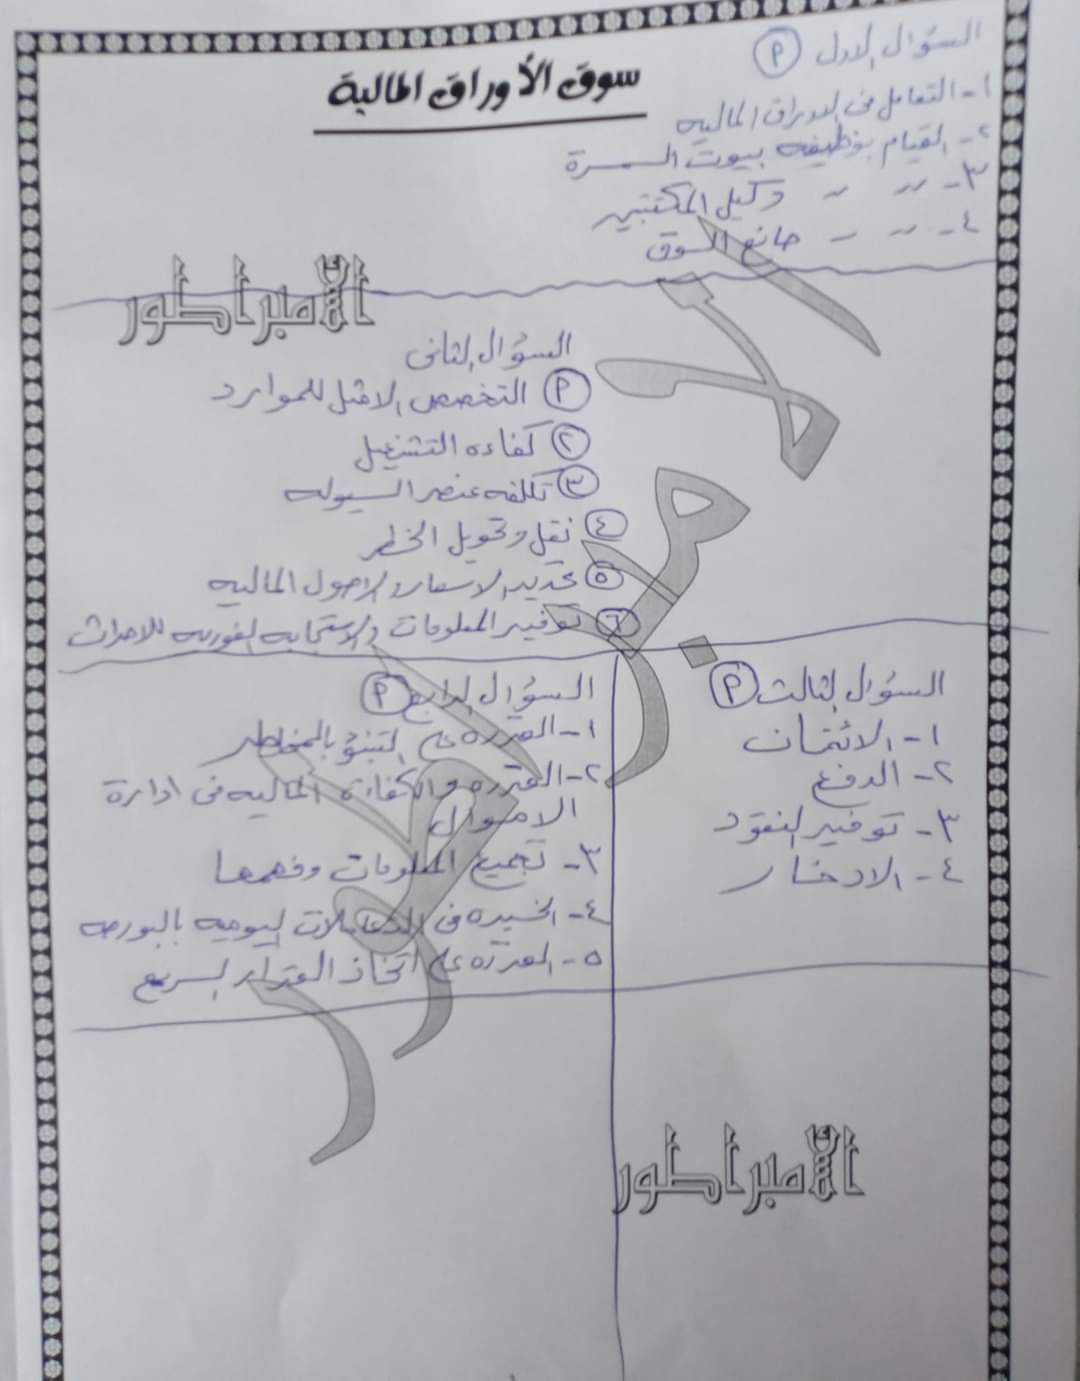 سوق الأوراق المالية
السؤال الاول (P)
١- التعامل فى الاوراق الماليه
٢- القيام بوظيفه بيوت السمسرة
٣- ״ ״ وكيل المكتتبين
٤- ״ ״ صانع السوق
الأمبراطور
السؤال الثانى
(P) التخصص الامثل للموارد
(٢) كفاءه التشغيل
(٣) تكلفه عنصر السيوله
(٤) نقل وتحويل الخطر
(٥) تحديد الاسعار والاصول الماليه
(٦) توفير المعلومات والاستجابه الفوريه للاحداث
السؤال الثالث (P)
١- الائتمان
٢- الدفع
٣- توفير النقود
٤- الادخار
السؤال الرابع (P)
١- القدره على التنبؤ بالمخاطر
٢- القدره والكفاءة الماليه فى ادارة
الاموال
٣- تجميع المعلومات وفهمها
٤- الخبره فى التعاملات اليوميه بالبورصه
٥- القدره على اتخاذ القرار السريع
الأمبراطور
الامبراطور